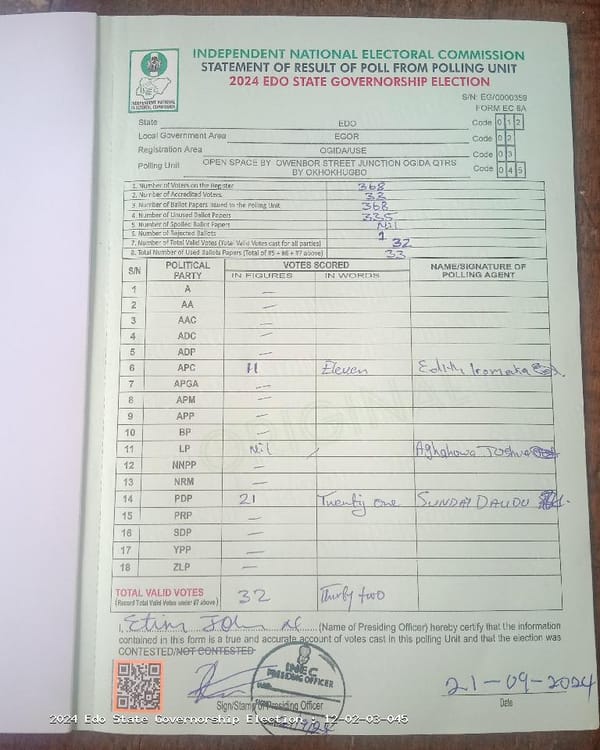 INDEPENDENT NATIONAL ELECTORAL COMMISSION
STATEMENT OF RESULT OF POLL FROM POLLING UNIT
2024 EDO STATE GOVERNORSHIP ELECTION
INDEPENDENT NATIONAL ELECTORAL COMMISSION
S/N: EG/0000359
FORM EC 8A
State EDO Code 0 1 2
Local Government Area EGOR Code 0 2
Registration Area OGIDA/USE Code 0 3
Polling Unit OPEN SPACE BY OWENBOR STREET JUNCTION OGIDA QTRS BY OKHOKHUGBO Code 0 4 5
1. Number of Voters on the Register 368
2. Number of Accredited Voters 33
3. Number of Ballot Papers Issued to the Polling Unit 368
4. Number of Unused Ballot Papers 335
5. Number of Spoiled Ballot Papers Nil
6. Number of Rejected Ballots 1
7. Number of Total Valid Votes (Total Valid Votes cast for all parties) 32
8. Total Number of Used Ballots Papers (Total of #5 + #6 + #7 above) 33
S/N POLITICAL PARTY VOTES SCORED NAME/SIGNATURE OF POLLING AGENT
IN FIGURES IN WORDS
1 A —
2 AA —
3 AAC —
4 ADC —
5 ADP —
6 APC 11 Eleven Edith Iromaka
7 APGA —
8 APM —
9 APP —
10 BP —
11 LP Nil / Aghahowa Joshua
12 NNPP —
13 NRM —
14 PDP 21 Twenty one SUNDAY DAUDU
15 PRP —
16 SDP —
17 YPP —
18 ZLP —
TOTAL VALID VOTES 32 Thirty two
(Record Total Valid Votes under #7 above)
I, Etim John (Name of Presiding Officer) hereby certify that the information
contained in this form is a true and accurate account of votes cast in this polling Unit and that the election was
CONTESTED/NOT CONTESTED
INEC
PRESIDING OFFICER
21-09-2024
Sign/Stamp of Presiding Officer Date
2024 Edo State Governorship Election : 12-02-03-045